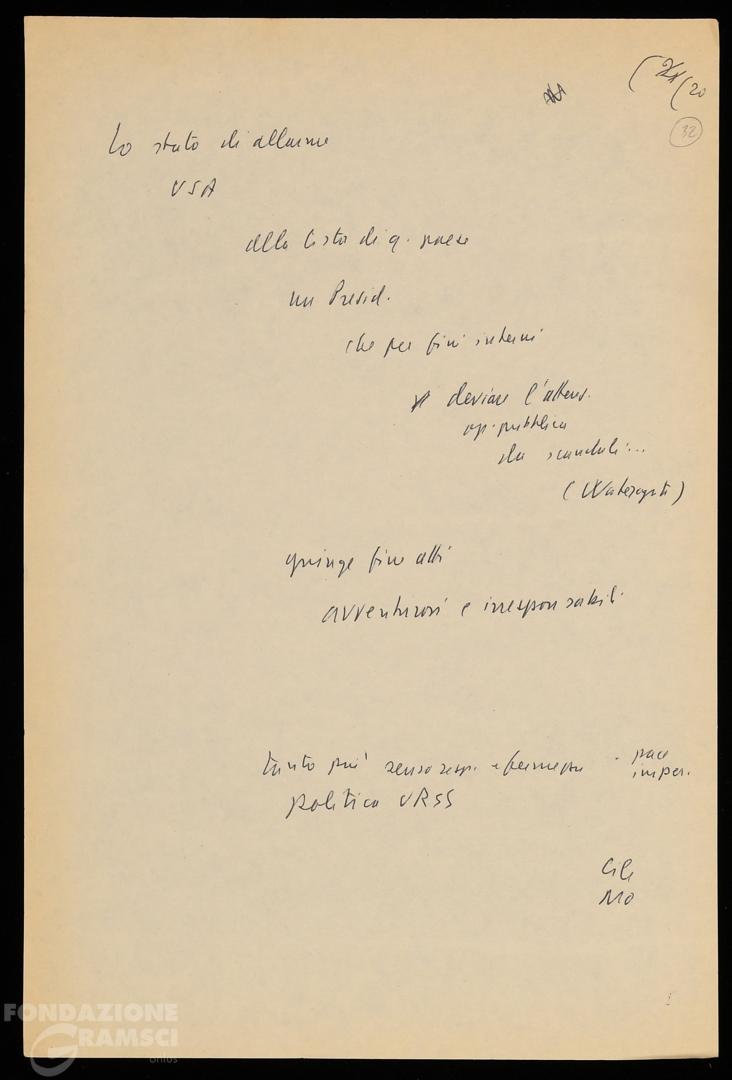 (20
32
Lo stato di allarme
USA
alla testa di q. paese
un Presid.
che per fini interni
deviare l'attenz.
op. pubblica
da scandali...
(Watergate)
spinge fino atti
avventurosi e irresponsabili
tanto più senso resp. e fermezza - pace
imper.
politica URSS
Cile
MO
FONDAZIONE
GRAMSCI
onlus